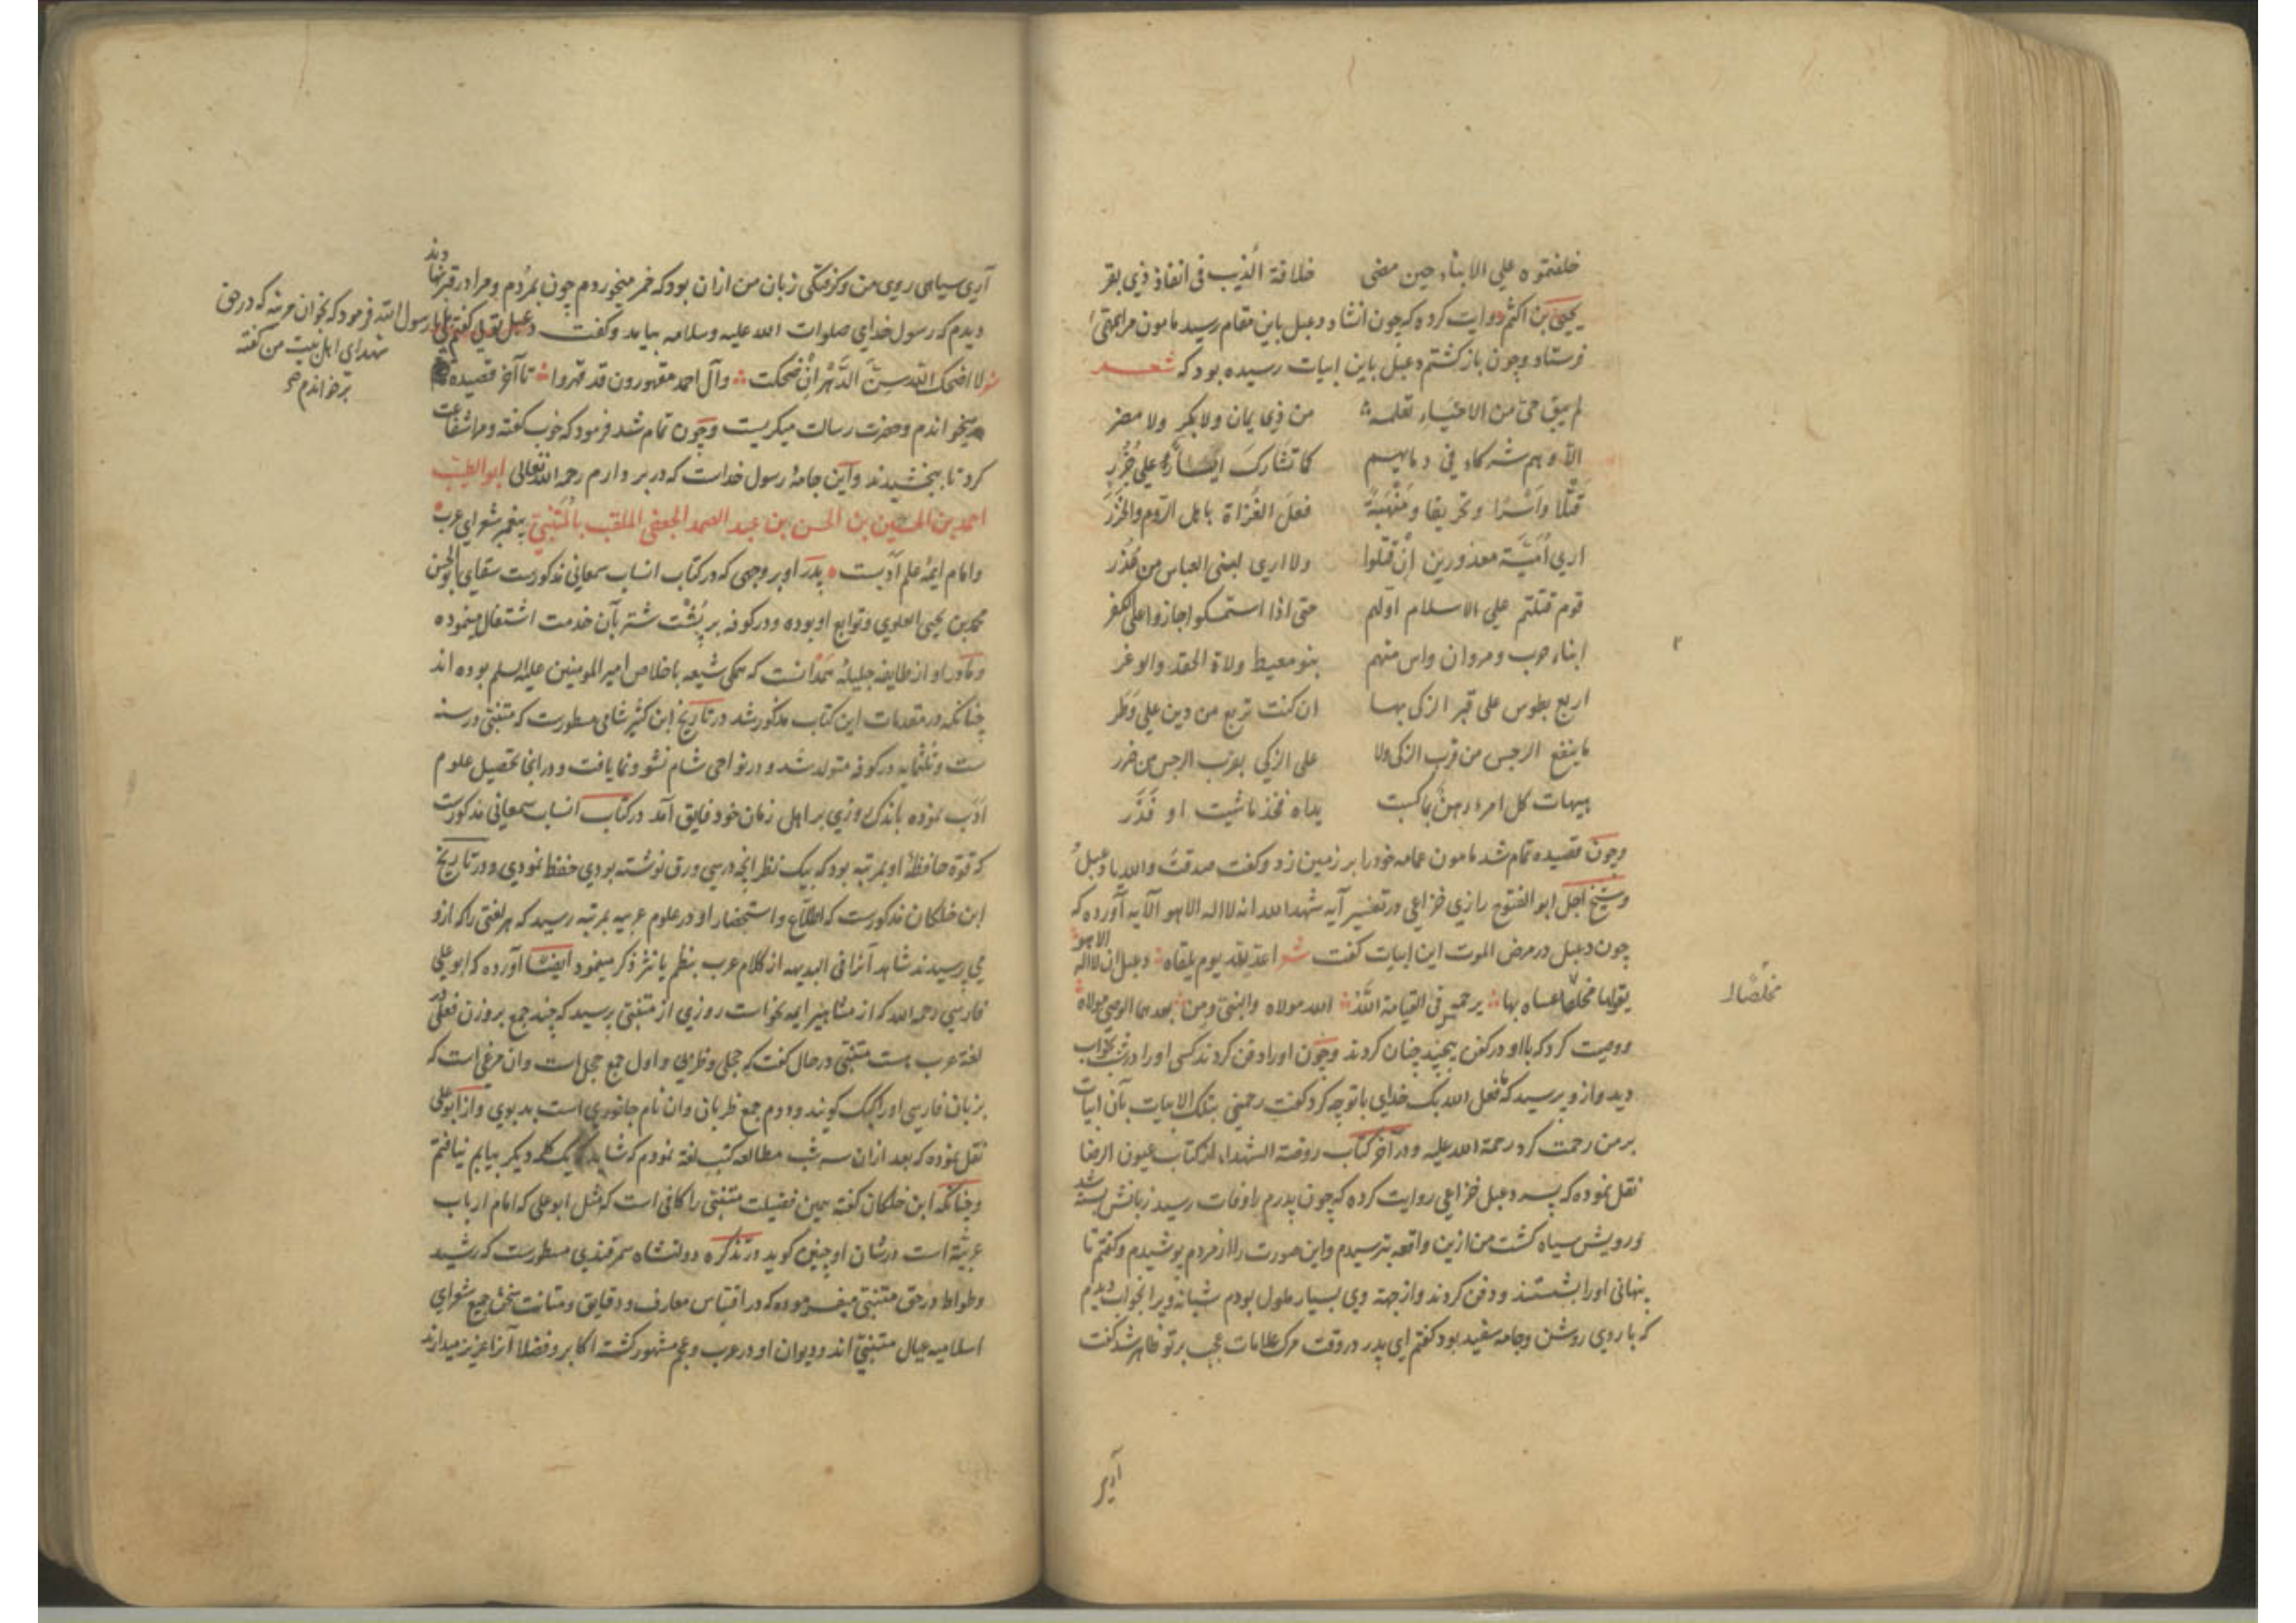 خلفتموه علی الابناء حین مضی خلافة الذیب فی انفاذ ذی بقر
یحیی بن اکثم روایت کرده که چون انشاد دعبل باین مقام رسید مامون مرا بجهتی
فرستاد و چون بازکشتم دعبل باین ابیات رسیده بود که شعر
لم یبق حی من الاحیاء نعلمه من ذی یمان ولا بکر ولا مضر
الا و هم شرکاء فی دمائهم کما تشارک ایسار علی جزر
قتلا واسرا و تحریقا و منهبة فعل الغزاة باهل الروم والخزر
اری امیة معذورین ان قتلوا ولا اری لبنی العباس من عذر
قوم قتلتم علی الاسلام اولهم حتی اذا استمکنوا جازوا علی الکفر
ابناء حرب و مروان واس منهم بنو معیط ولاة الحقد والوغر
اربع بطوس علی قبر الزکی بها ان کنت تربع من دین علی وطر
ما ینفع الرجس من قرب الزکی ولا علی الزکی بقرب الرجس من ضرر
هیهات کل امرء رهن بما کسبت یداه فخذ ما شیت او فذر
و چون قصیده تمام شد مامون عمامه خود را بر زمین زد و کفت صدقت والله یا دعبل
و شیخ اجل ابو الفتوح رازی خزاعی در تفسیر آیه شهد الله انه لا اله الا هو الآیه آورده که
چون دعبل در مرض الموت این ابیات کفت شعر اعد لله یوم یلقاه دعبل ان لا اله الا هو
یقولها مخلصا عساه بها یرحمه فی القیامة الله الله مولاه والنبی ومن بعدهما الوصی مولاه
مخلصا
و وصیت کرد که با او در کفن پیچیند چنان کردند و چون او را دفن کردند کسی او را در شب بخواب
دید و ازو پرسید که ما فعل الله بک خدای با تو چه کرد کفت رحمنی بتلک الابیات بآن ابیات
بر من رحمت کرد رحمة الله علیه و در آخر کتاب روضة الشهداء از کتاب عیون الرضا
نقل نموده که پسر دعبل خزاعی روایت کرده که چون پدرم را وفات رسید زبانش بسته شد
و رویش سیاه کشت من ازین واقعه بترسیدم و این صورت را از مردم پوشیدم و کفتم تا
پنهانی او را بشستند و دفن کردند و از جهة وی بسیار ملول بودم شبانه ویرا بخواب دیدم
که با روی روشن و جامه سفید بود کفتم ای پدر در وقت مرک علامات عجب بر تو ظاهر شد کفت
آری
آری سیاهی روی من و کرفتکی زبان من ازان بود که خمر میخوردم چون بمردم و مرا در قبر نهادند
دیدم که رسول خدای صلوات الله علیه و سلامه بیامد و کفت دعبل تویی کفتم بلی یا رسول الله فرمود که بخوان مرثیه که در حق
شهدای اهل بیت من کفته
بر خواندم
شعر لا اضحک الله سن الدهر ان ضحکت وآل احمد مقهورون قد قهروا تا آخر قصیده
میخواندم و حضرت رسالت میکریست و چون تمام شد فرمود که خوب کفته و مرا شفاعت
کرد تا ببخشیدند و این جامهٔ رسول خداست که در بر دارم رحمه الله تعالی ابو الطیب
احمد بن الحسین بن الحسن بن عبد الصمد الجعفی الملقب بالمتنبی پیغمبر شعرای عرب
و امام ایمهٔ علم ادبست پدر او بر وجهی که در کتاب انساب سمعانی مذکورست سقای ابو الحسن
محمد بن یحیی العلوی و توابع او بوده و در کوفه بر پشت شتر بآن خدمت اشتغال مینموده
و مادر او از طایفه جلیلهٔ همدانست که همکی شیعه باخلاص امیر المومنین علیه السلم بوده اند
چنانکه در مقدمات این کتاب مذکور شد در تاریخ ابن کثیر شامی مسطورست که متنبی در سنه
ست و ثلثمایه در کوفه متولد شد و در نواحی شام نشو و نما یافت و در انجا تحصیل علوم
ادب نموده باندک روزی بر اهل زمان خود فایق آمد در کتاب انساب سمعانی مذکورست
که قوة حافظهٔ او بمرتبه بود که بیک نظر انچه در سی ورق نوشته بودی حفظ نمودی و در تاریخ
ابن خلکان مذکورست که اطلاع و استحضار او در علوم عربیه بمرتبه رسید که هر لغتی را که ازو
می پرسیدند شاهد آنرا فی البدیهه از کلام عرب بنظم یا نثر ذکر مینمود ایضا آورده که ابو علی
فارسی رحمه الله که از مشاهیر ایمه نحو است روزی از متنبی پرسید که چند جمع بر وزن فعلی در
لغة عرب هست متنبی در حال کفت که حجلی و ظربی و اول جمع حجل است و ان مرغی است که
بزبان فارسی اورا کبک کویند و دوم جمع ظربان و ان نام جانوری است بد بوی و از ابو علی
نقل نموده که بعد ازان سه شب مطالعه کتب لغة نمودم که شاید یک کلمه دیکر بیابم نیافتم
و چنانکه ابن خلکان کفته همین فضیلت متنبی را کافی است که مثل ابو علی که امام ارباب
عربیة است در شان او چنین کوید در تذکره دولتشاه سمرقندی مسطورست که رشید
وطواط در حق متنبی میفرموده که در اقتباس معارف و دقایق و متانت سخن جمیع شعرای
اسلامیه عیال متنبی اند و دیوان او در عرب و عجم مشهور کشته اکابر و فضلا آنرا عزیز میدارند